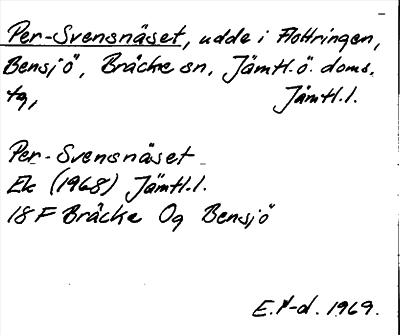 Per-Svensnäset, udde i Flottringen,
Bensjö, Bräcke sn, Jämtl. ö. doms.
tg, Jämtl. l.
Per-Svensnäset
Ek (1968) Jämtl. l.
18 F Bräcke Og Bensjö
E. N-d. 1969.